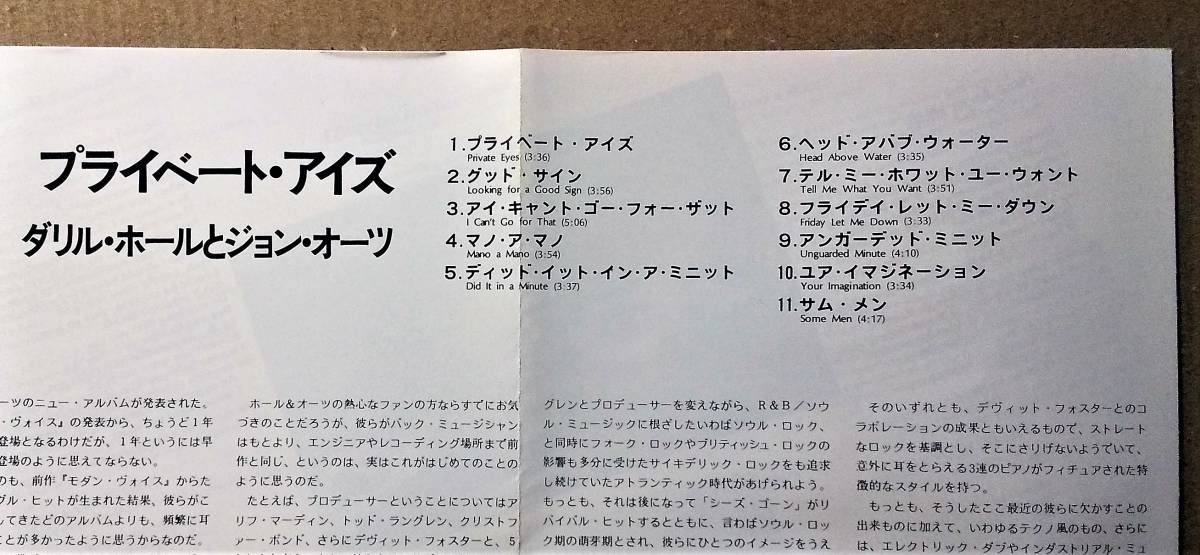 プライベート・アイズ
ダリル・ホールとジョン・オーツ
1.プライベート・アイズ
Private Eyes (3:36)
2.グッド・サイン
Looking for a Good Sign (3:56)
3.アイ・キャント・ゴー・フォー・ザット
I Can't Go for That (5:06)
4.マノ・ア・マノ
Mano a Mano (3:54)
5.ディッド・イット・イン・ア・ミニット
Did It in a Minute (3:37)
6.ヘッド・アバブ・ウォーター
Head Above Water (3:35)
7.テル・ミー・ホワット・ユー・ウォント
Tell Me What You Want (3:51)
8.フライデイ・レット・ミー・ダウン
Friday Let Me Down (3:33)
9.アンガーデッド・ミニット
Unguarded Minute (4:10)
10.ユア・イマジネーション
Your Imagination (3:34)
11.サム・メン
Some Men (4:17)
ーツのニュー・アルバムが発表された。
・ヴォイス』の発表から、ちょうど1年
登場となるわけだが、1年というには早
登場のように思えてならない。
のも、前作『モダン・ヴォイス』からた
ブル・ヒットが生まれた結果、彼らがこ
してきたどのアルバムよりも、頻繁に耳
ことが多かったように思うからなのだ。
ホール&オーツの熱心なファンの方ならすでにお気
づきのことだろうが、彼らがバック・ミュージシャン
はもとより、エンジニアやレコーディング場所まで前
作と同じ、というのは、実はこれがはじめてのことの
ように思うのだ。
たとえば、プロデューサーということについてはア
リフ・マーディン、トッド・ラングレン、クリストフ
ァー・ボンド、さらにデヴィット・フォスターと、5
グレンとプロデューサーを変えながら、R&B/ソウ
ル・ミュージックに根ざしたいわばソウル・ロック、
と同時にフォーク・ロックやブリティッシュ・ロックの
影響も多分に受けたサイキデリック・ロックをも追求
し続けていたアトランティック時代があげられよう。
もっとも、それは後になって「シーズ・ゴーン」がリ
バイバル・ヒットするとともに、言わばソウル・ロッ
ク期の萌芽期とされ、彼らにひとつのイメージをうえ
そのいずれとも、デヴィット・フォスターとのコ
ラボレーションの成果ともいえるもので、ストレート
なロックを基調とし、そこにさりげないようでいて、
意外に耳をとらえる3連のピアノがフィチュアされた特
徴的なスタイルを持つ。
もっとも、そうしたここ最近の彼らに欠かすことの
出来ものに加えて、いわゆるテクノ風のもの、さらに
は、エレクトリック・ダブやインダストリアル・ミュ